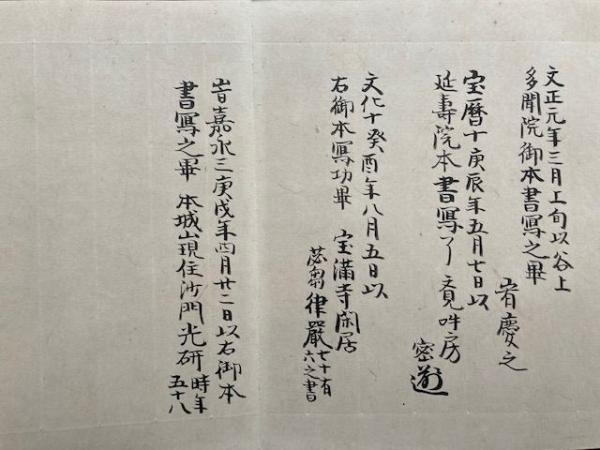 文正元年三月上旬以谷上
多聞院御本書寫之畢
宥慶之
宝暦十庚辰年五月七日以
延壽院本書寫了 吽房
密
文化十癸酉年八月五日以
右御本寫功畢 宝満寺閑居
苾蒭律嚴 七十有
六之書
旹嘉永三庚戌年四月廿二日以右御本
書寫之畢 本城山現住沙門光研 時年
五十八